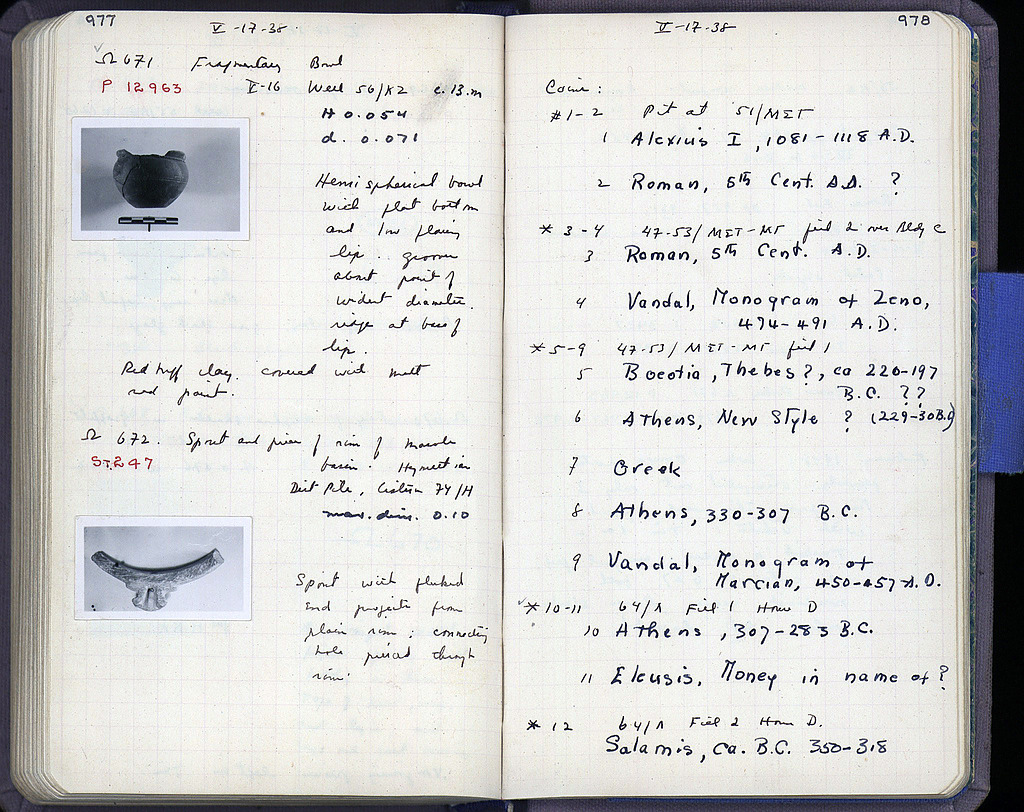 977
V-17-38
Ω 671 Fragmentary Bowl
P 12963 V-16 Well 56/K2 c. 13.m
H 0.054
d. 0.071
Hemispherical bowl
with flat bottom
and low flaring
lip. groove
about point of
widest diameter.
ridge at base of
lip.
Red buff clay. covered with matt
red paint.
Ω 672. Spout and piece of rim of marble
ST.247 basin. Hymettian
Dist Pile, Cistern 74/H
max. dim. 0.10
Spout with fluked
end projects from
plain rim: connecting
hole pierced through
rim.
978
V-17-38
Coins:
#1-2 Pit at 51/ΜΣΤ
1 Alexius I, 1081-1118 A.D.
2 Roman, 5th Cent. A.D. ?
* 3-4 47-53/ΜΣΤ-ΜΓ fill 2 over Bldg C
3 Roman, 5th Cent. A.D.
4 Vandal, Monogram of Zeno,
474-491 A.D.
* 5-9 47-53/ΜΣΤ-ΜΓ fill 1
5 Boeotia, Thebes?, ca 220-197
B.C. ??
6 Athens, New Style ? (229-30B.C)
7 Greek
8 Athens, 330-307 B.C.
9 Vandal, Monogram of
Marcian, 450-457 A.D.
* 10-11 64/Λ Fill 1 House D
10 Athens, 307-283 B.C.
11 Eleusis, Money in name of ?
* 12 64/Λ Fill 2 House D.
Salamis, ca. B.C. 350-318